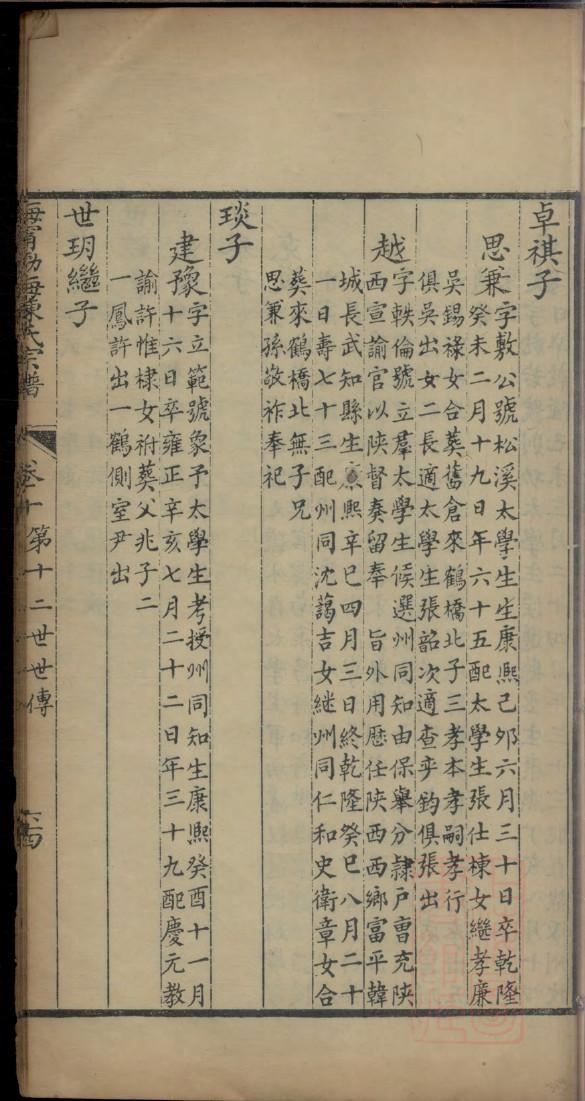 卓祺子
思兼字敷公號松溪太學生生康熙己夘六月三十日卒乾隆
癸未二月十九日年六十五配太學生張仕棟女繼孝廉
吳錫祿女合葬舊倉來鶴橋北子三孝本孝嗣孝行
俱吳出女二長適太學生張韶次適查奕鈞俱張出
越字軼倫號立羣太學生候選州同知由保舉分隷戶曺充陝
西宣諭官以陝督奏留奉　旨外用歷任陝西西鄉富平韓
城長武知縣生康熙辛巳四月三日終乾隆癸巳八月二十
一日壽七十三配州同沈藹吉女継州同仁和史衛章女合
葵來鶴橋北無子兄
思兼孫敬祚奉祀
琰子
建豫字立範號象予太學生考授州同知生康熙癸酉十一月
十六日卒雍正辛亥七月二十二日年三十九配慶元教
諭許惟棣女祔葬父兆子二
一鳳許出一鶴側室尹出
世玥繼子
海甯渤海陳氏宗譜
卷十
第十二世世傳